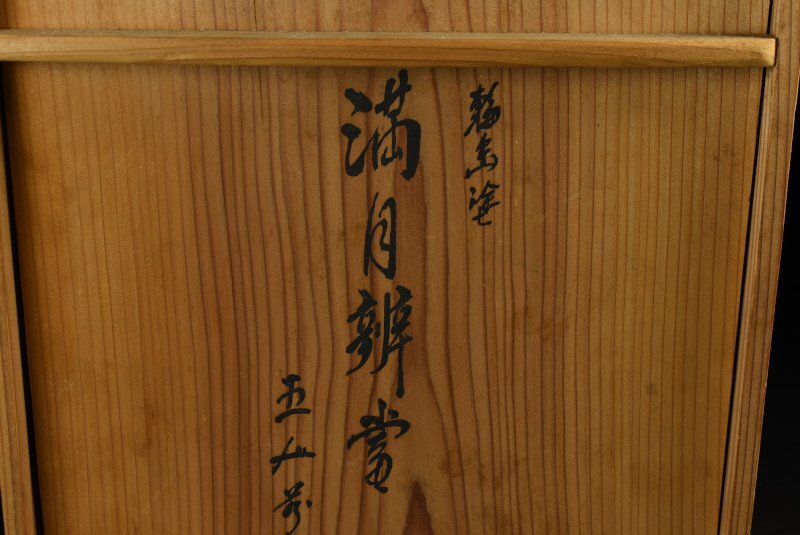 輪島塗
満月辨當
五人前